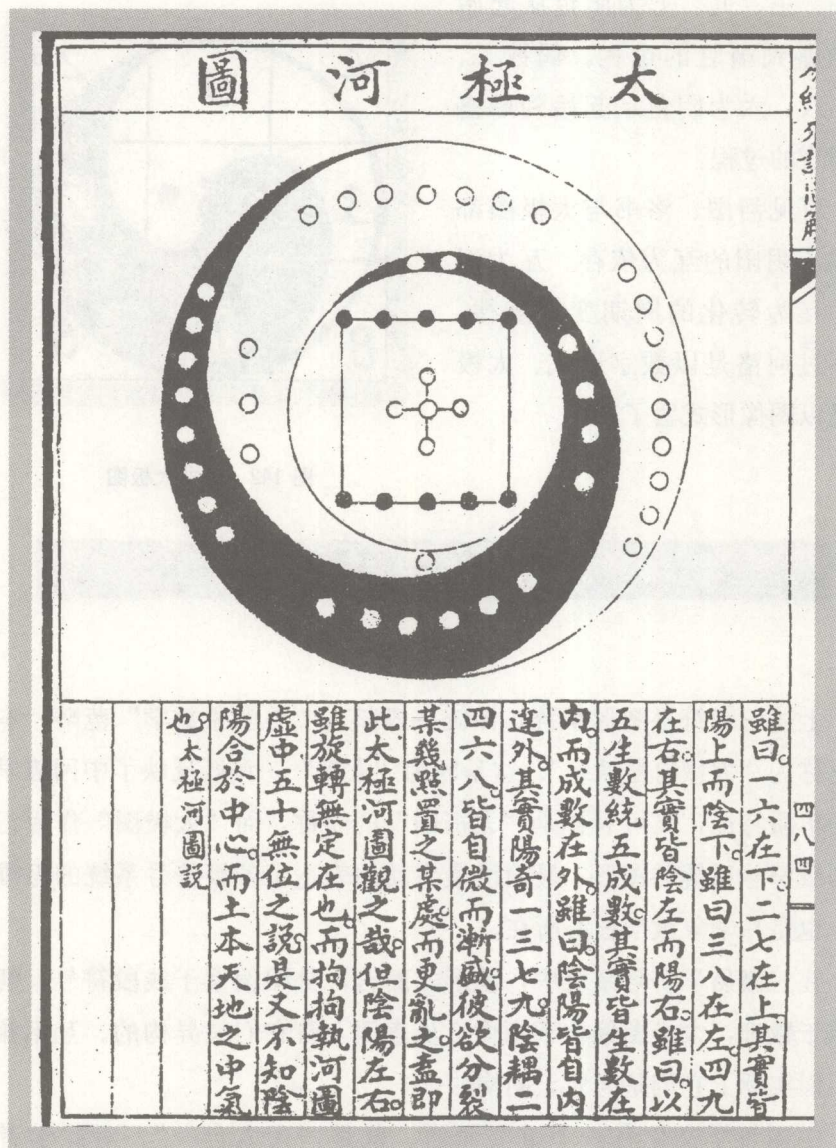 太極河圖
雖曰。六在下二七在上其實皆
陽上而陰下。雖曰三八在左。四九
在右。其實皆陰左而陽右。雖曰。以
五生數統五成數。其實皆生數在
内。而成數在外。雖曰。陰陽皆自内
達外。其實陽奇一三七九。陰耦二
四六八。皆自微而漸盛。彼欲分裂
某幾點置之某處。而更亂之。盍即
此太極河圖觀之哉。但陰陽左右。
雖旋轉無定在也。而拘拘執河圖
虛中五十無位之說。是又不知陰
陽合於中心。而土本天地之中氣
也。太極河圖說
四八四